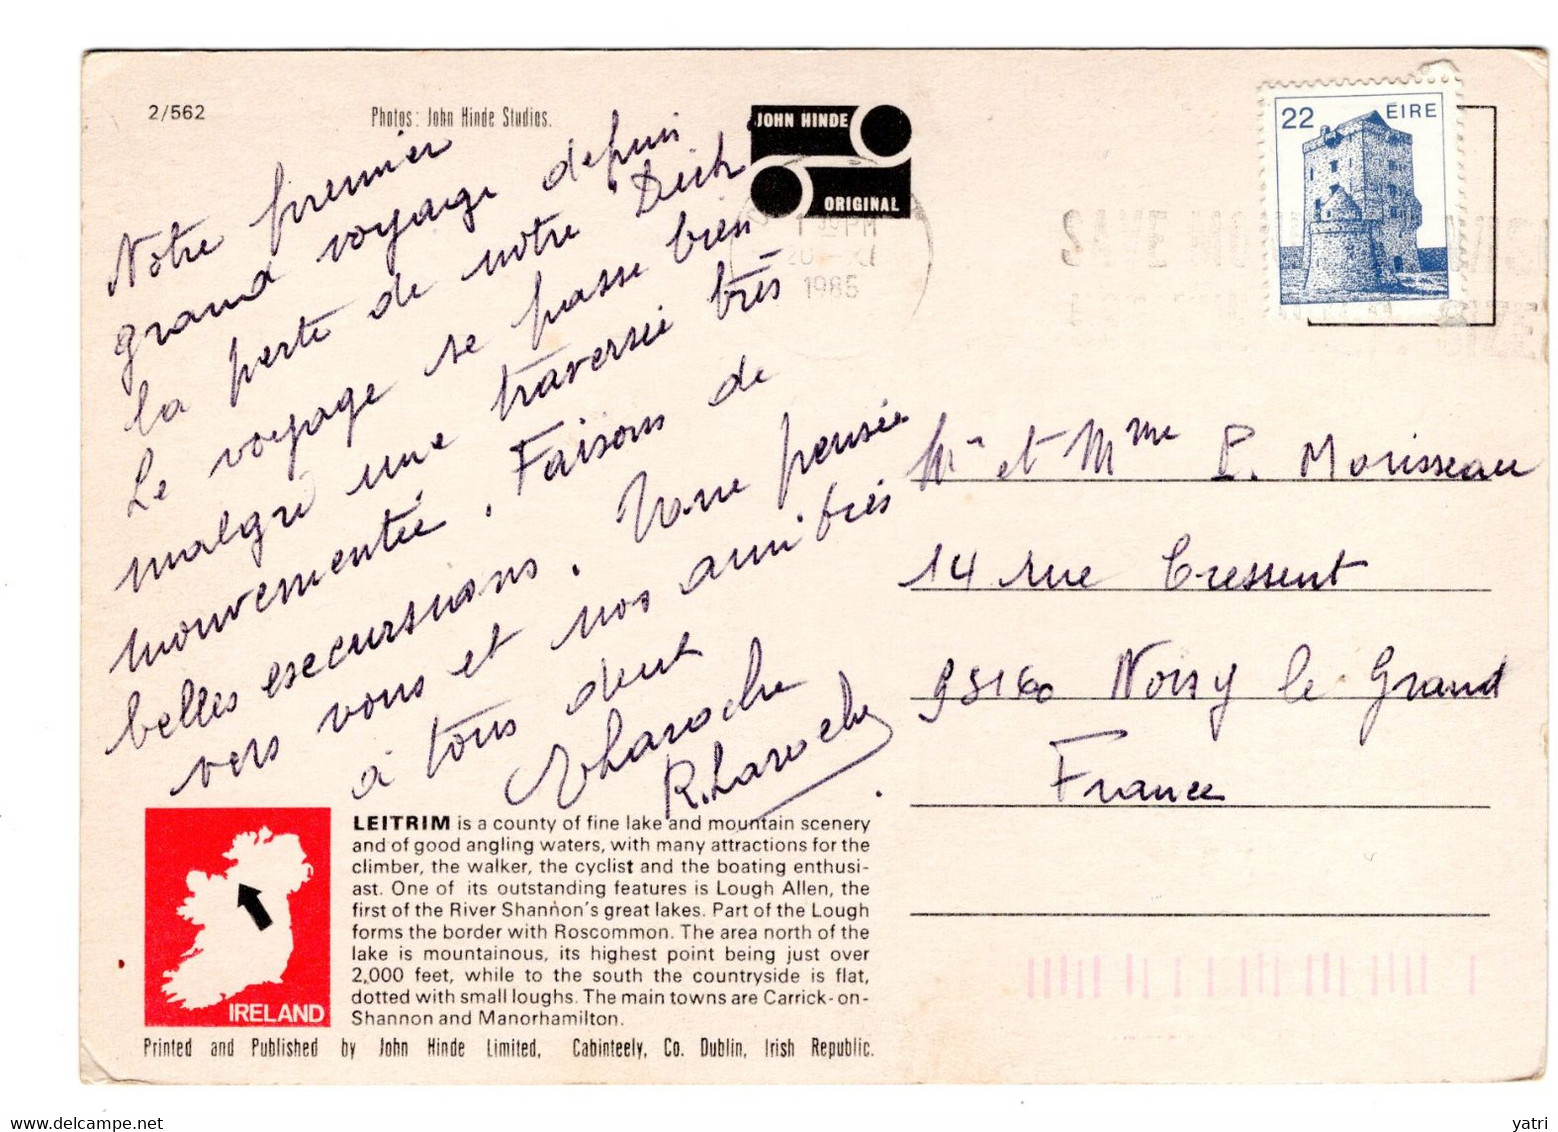 2/562
Photos: John Hinde Studios.
JOHN HINDE
ORIGINAL
22 ÉIRE
1985
Notre premier
grand voyage depuis
la perte de notre
Le voyage se passe bien
malgré une traversée très
mouvementée. Faisons de
belles excursions. Notre pensée
vers vous et nos amitiés
à tous deux
Laroche
R. Laroche
Mr et Mme P. Morisseau
14 rue Cressent
93160 Noisy le Grand
France
LEITRIM is a county of fine lake and mountain scenery
and of good angling waters, with many attractions for the
climber, the walker, the cyclist and the boating enthusi-
ast. One of its outstanding features is Lough Allen, the
first of the River Shannon's great lakes. Part of the Lough
forms the border with Roscommon. The area north of the
lake is mountainous, its highest point being just over
2,000 feet, while to the south the countryside is flat,
dotted with small loughs. The main towns are Carrick-on-
Shannon and Manorhamilton.
IRELAND
Printed and Published by John Hinde Limited, Cabinteely, Co. Dublin, Irish Republic.
yatri